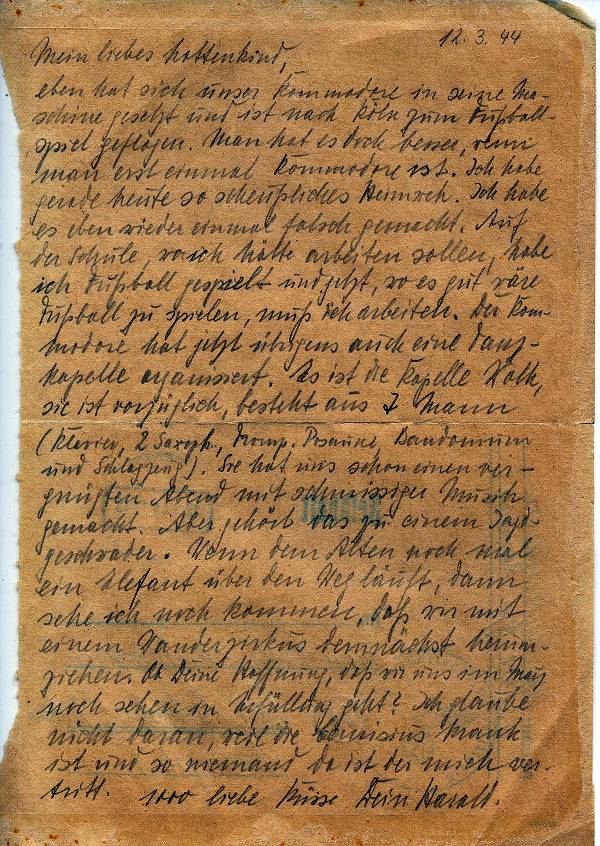 12. 3. 44
Mein liebes Kattenkind,
eben hat sich unser Kommodore in seine Ma-
schine gesetzt und ist nach Köln zum Fußball-
spiel geflogen. Man hat es doch besser, wenn
man erst einmal Kommodore ist. Ich habe
gerade heute so scheußliches Heimweh. Ich habe
es eben wieder einmal falsch gemacht. Auf
der Schule, wo ich hätte arbeiten sollen, habe
ich Fußball gespielt und jetzt, wo es gut wäre
Fußball zu spielen, muß ich arbeiten. Der Kom-
modore hat jetzt übrigens auch eine Tanz-
kapelle organisiert. Es ist die Kapelle
sie ist vorzüglich, besteht aus 7 Mann
(Klavier, 2 Saxoph., Tromp. Posaune, Bandonium
und Schlagzeug). Sie hat uns schon einen ver-
gnügten Abend mit schmissiger Musik
gemacht. Aber gehört das zu einem Jagd-
geschwader. Wenn dem Alten noch mal
ein Elefant über den Weg läuft, dann
sehe ich noch kommen, daß wir mit
einem Wanderzirkus demnächst herum-
ziehen. Ob Deine Hoffnung, daß wir uns im März
noch sehen in Erfüllung geht? Ich glaube
nicht daran, weil die krank
ist und so niemand da ist der mich ver-
tritt. 1000 liebe Küsse Dein Harald.